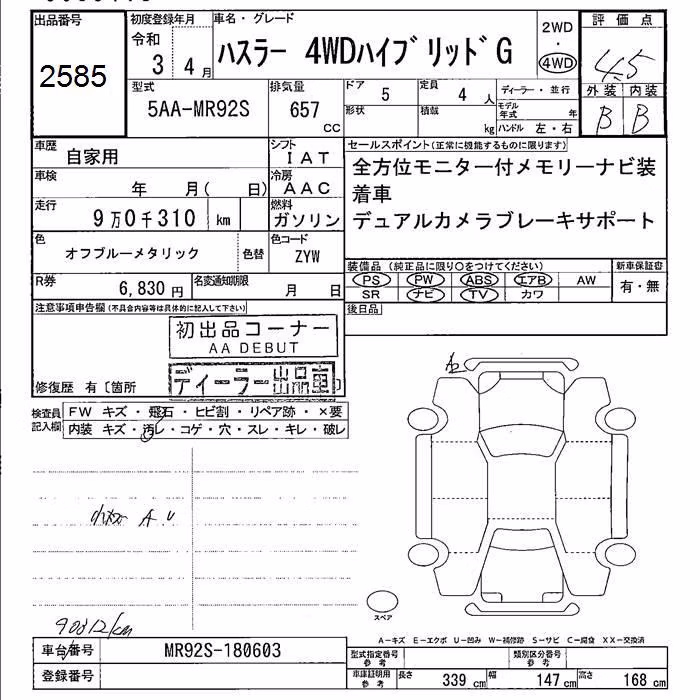 出品番号
2585
初度登録年月
令和
3 4月
車名・グレード
ハスラー 4WDハイブリッドG
2WD
・
4WD
評価点
4.5
外装 内装
B B
型式
5AA-MR92S
排気量
657
cc
ドア 5
定員 4 人
形状
積載 kg
ディーラー・並行
モデル年式 年
ハンドル 左・右
車歴 自家用
シフト IAT
車検 年 月( 日)
冷房 AAC
走行 9万0千310 km
燃料 ガソリン
色 オフブルーメタリック
色替
色コード ZYW
R券 6,830円
名変通知期限 月 日
セールスポイント(正常に機能するものに限ります)
全方位モニター付メモリーナビ装
着車
デュアルカメラブレーキサポート
装備品(純正品に限り○をつけてください)
PS PW ABS エアB AW
SR ナビ TV カワ
新車保証書
有・無
後日品
注意事項申告欄(不具合内容等は具体的に記入して下さい)
初出品コーナー
AA DEBUT
ディーラー出品車
修復歴 有〔箇所 〕
検査員
記入欄
FW キズ・飛石・ヒビ割・リペア跡・×要
内装 キズ・汚レ・コゲ・穴・スレ・キレ・破レ
A U
A2
スペア
90312km
A-キズ E-エクボ U-凹み W-補修跡 S-サビ C-腐食 XX-交換済
車台番号 MR92S-180603
登録番号
型式指定番号
参考
類別区分番号
参考
車庫証明用
参考
長さ 339 cm
幅 147 cm
高さ 168 cm